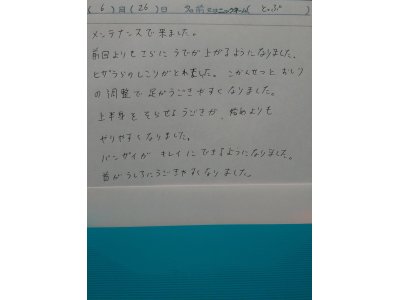 ( 6 )月( 26 )日 名前 ニックネーム( とっぷ )
メンテナンスで来ました。
前回よりもさらにうでが上がるようになりました。
ヒザうらのしこりがとれました。こかんせつと おしり
の調整で足がうごきやすくなりました。
上半身を そらせるうごきが、始めよりも
やりやすくなりました。
バンザイが キレイに できるようになりました。
首がうしろにうごきやすくなりました。